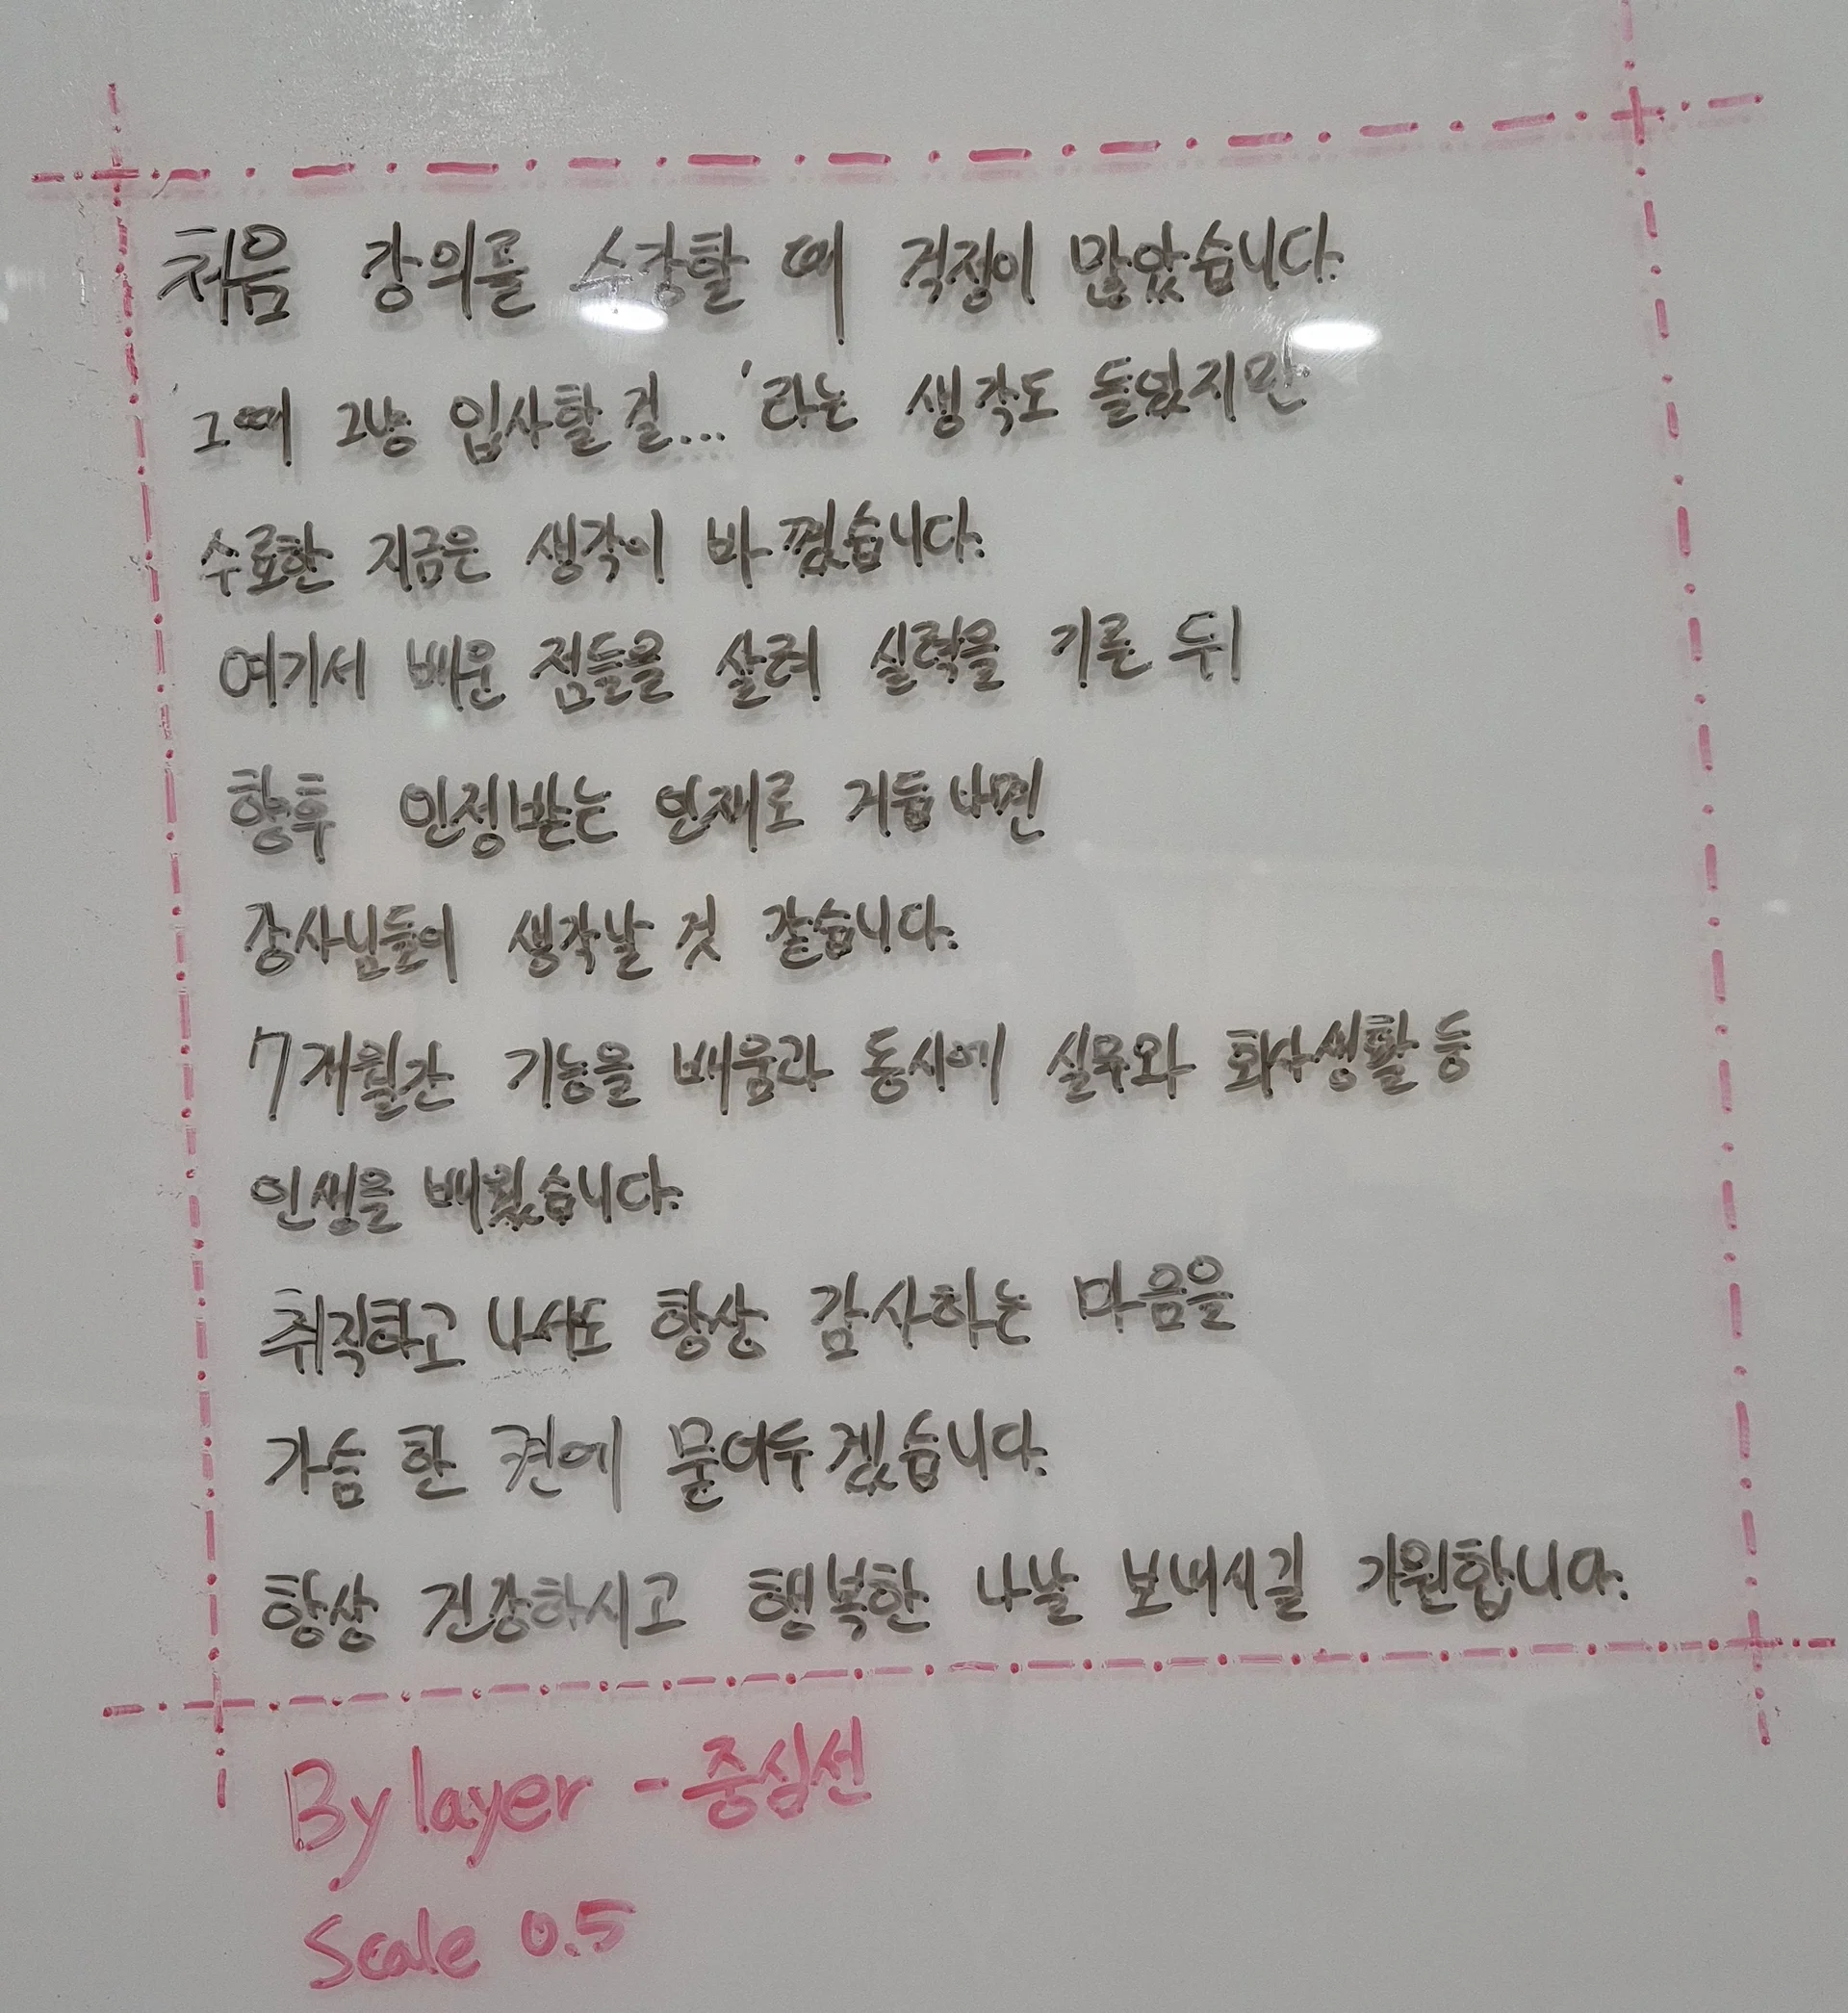 처음 강의를 수강할 때 걱정이 많았습니다.
'그때 그냥 입사할걸...'라는 생각도 들었지만
수료한 지금은 생각이 바꼈습니다.
여기서 배운 점들을 살려 실력을 기른 뒤
향후 인정받는 인재로 거듭나면
강사님들이 생각날 것 같습니다.
7개월간 기능을 배움과 동시에 실무와 회사생활 등
인생을 배웠습니다.
취직하고 나서도 항상 감사하는 마음을
가슴 한 켠에 묻어두겠습니다.
항상 건강하시고 행복한 나날 보내시길 기원합니다.
By layer - 중심선
Scale 0.5